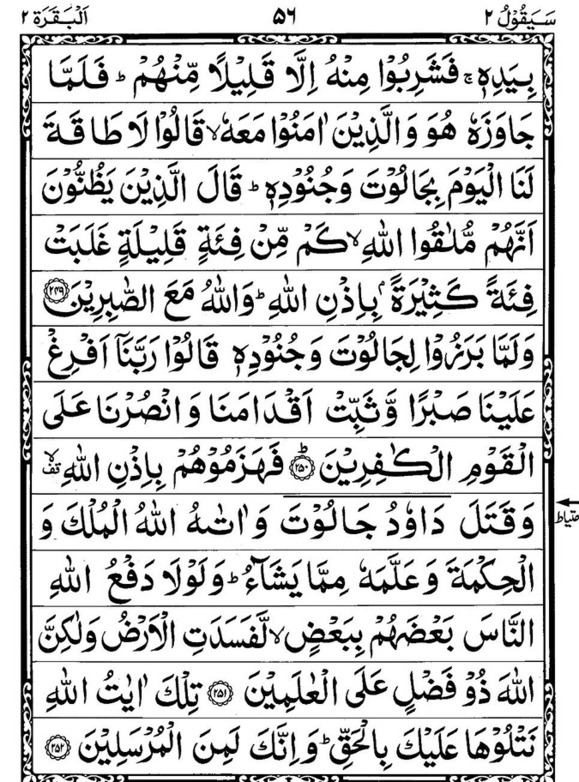 سَيَقُوْلُ ٢ ٥٦ اَلْبَقَرَة ٢
بِيَدِهٖ ۚ فَشَرِبُوْا مِنْهُ اِلَّا قَلِيْلًا مِّنْهُمْ ؕ فَلَمَّا
جَاوَزَهٗ هُوَ وَالَّذِيْنَ اٰمَنُوْا مَعَهٗ ۙ قَالُوْا لَا طَاقَةَ
لَنَا الْيَوْمَ بِجَالُوْتَ وَجُنُوْدِهٖ ؕ قَالَ الَّذِيْنَ يَظُنُّوْنَ
اَنَّهُمْ مُّلٰقُوا اللّٰهِ ۙ كَمْ مِّنْ فِئَةٍ قَلِيْلَةٍ غَلَبَتْ
فِئَةً كَثِيْرَةًۢ بِاِذْنِ اللّٰهِ ؕ وَاللّٰهُ مَعَ الصّٰبِرِيْنَ ﴿٢٤٩﴾
وَلَمَّا بَرَزُوْا لِجَالُوْتَ وَجُنُوْدِهٖ قَالُوْا رَبَّنَاۤ اَفْرِغْ
عَلَيْنَا صَبْرًا وَّثَبِّتْ اَقْدَامَنَا وَانْصُرْنَا عَلَى
الْقَوْمِ الْكٰفِرِيْنَ ؕ﴿٢٥٠﴾ فَهَزَمُوْهُمْ بِاِذْنِ اللّٰهِ ۙ قف
وَقَتَلَ دَاوٗدُ جَالُوْتَ وَاٰتٰىهُ اللّٰهُ الْمُلْكَ وَ
احتياط
الْحِكْمَةَ وَعَلَّمَهٗ مِمَّا يَشَآءُ ؕ وَلَوْلَا دَفْعُ اللّٰهِ
النَّاسَ بَعْضَهُمْ بِبَعْضٍ ۙ لَّفَسَدَتِ الْاَرْضُ وَلٰكِنَّ
اللّٰهَ ذُوْ فَضْلٍ عَلَى الْعٰلَمِيْنَ ﴿٢٥١﴾ تِلْكَ اٰيٰتُ اللّٰهِ
نَتْلُوْهَا عَلَيْكَ بِالْحَقِّ ؕ وَاِنَّكَ لَمِنَ الْمُرْسَلِيْنَ ﴿٢٥٢﴾